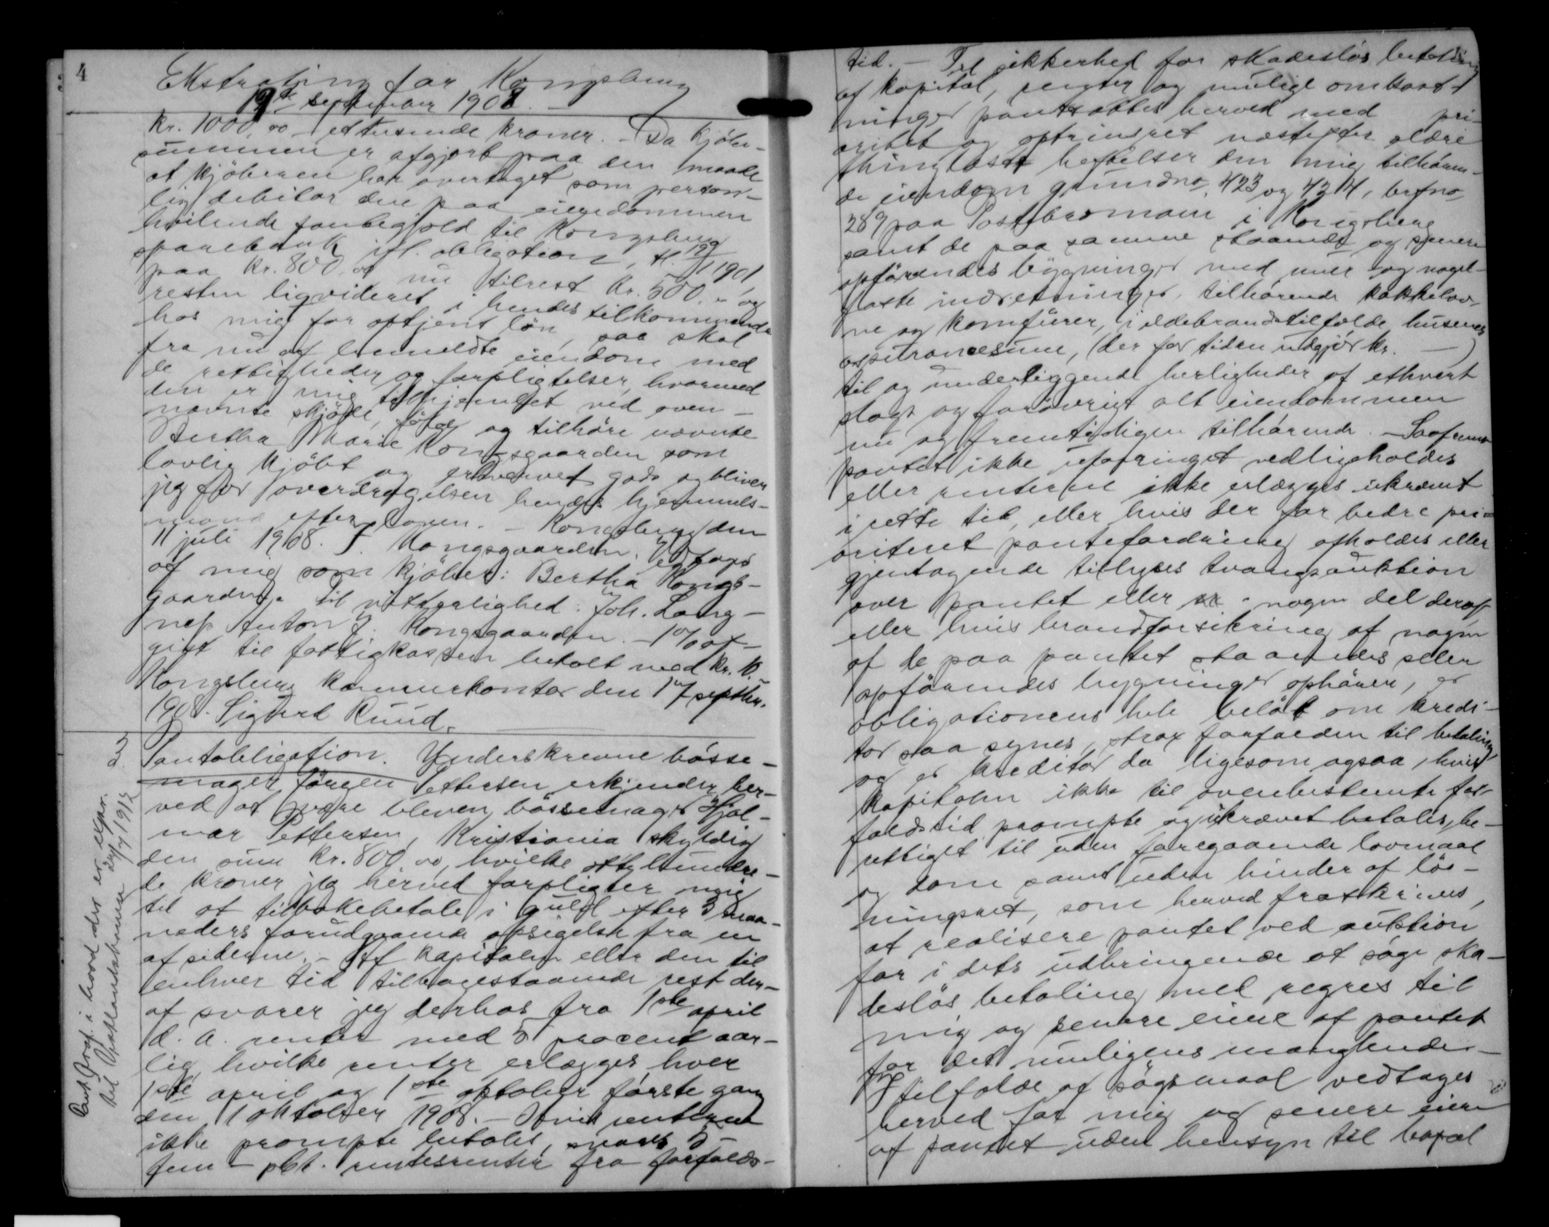 4
Ekstrating for Kongsberg
19de september 1908.
kr. 1000,00 – ettusende kroner. – Da kjöbe-
summen er afgjort paa den maade
at kjöberen har overtaget som person-
lig debitor den paa eiendommen
hvilende pantegjæld til Kongsberg
sparebank ifl. obligation, tl. 1901
paa kr. 800,00 nu tilrest kr. 500,– og
resten ligvideret i hendes tilkommende
hos mig for optjent lön, saa skal
fra nu af bemeldte eiendom med
de rettigheder og forpligtelser, hvormed
den er mig tilhjemlet ved oven-
nævnte skjöde, og tilhöre nævnte
Bertha Marie Kongsgaarden som
lovlig kjöbt og erhvervet gods og bliver
jeg for overdragelsen hendes hjemmels-
mand efter loven. – Kongsberg den
11 juli 1908. J. Kongsgaarden. Vedtages
af mig som kjöber: Bertha Kongs-
gaarden. Til vitterlighed: Joh. Lang-
nes Anton Kongsgaarden. –
gift til fattigkassen betalt med kr.
Kongsberg kæmnerkontor den 17 septbr.
1908. Sigurd Ruud.
Pantobligation. Underskrevne bösse-
mager Jörgen Pettersen erkjender her-
ved at være bleven bössemager Hjal-
mar Pettersen, Kristiania skyldig
den sum kr. 800,00, hvilke ottehundre-
de kroner jeg herved forpligter mig
til at tilbakebetale i guld efter 3 maa-
neders forudgaaende opsigelse fra en
af siderne. – Af kapitalen eller den til
enhver tid tilbagestaaende rest der-
af svarer jeg derhos fra 1ste april
d. a. renter med 5 procent aar-
lig, hvilke renter erlægges hver
1ste april og 1ste oktober förste gang
den 1 oktober 1908. – Hvis renterne
ikke prompte betales, svares 5 –
fem – pct. rentesrenter fra forfalds-
tid. – Til sikkerhed for skadeslös betaling
af kapital, renter og mulige omkost-
ninger pantsættes herved med pri-
oritet og optrinsret næstefter ældre
thinglæste heftelser den mig tilhören-
de eiendom grundno. 423 og 424, brfno
289 paa i Kongsberg
samt de paa samme staaende og senere
opförendes bygninger med mur- og nagel-
faste indretninger, tilhörende kakkelov-
ne og komfurer, i ildebrandstilfælde husenes
assurancesum, (der for tiden udgjör kr. —)
til og underliggende herligheder af ethvert
slags og forövrigt alt eiendommen
nu og fremtidigen tilhörende. – Saafremt
pantet ikke vedligeholdes
eller renterne ikke erlægges ukrævet
i rette tid, eller hvis der for bedre pri-
oriteret pantefordring afholdes eller
gjentagende tillyses tvangsauktion
over pantet eller nogen del deraf
eller hvis brandforsikring af nogen
af de paa pantet staaendes eller
opförendes bygninger ophörer, er
obligationens hele belöb om kredi-
tor saa synes, strax forfalden til betaling
og er kreditor da ligesom ogsaa, hvis
kapitalen ikke til ovenbestemte for-
faldstid prompte og ukrævet betales, be-
rettiget til uden foregaaende lovmaal
og dom samt uden hinder af lös-
ningsret, som herved fraskrives,
at realisere pantet ved auktion
for i dets udbringende at söge ska-
deslös betaling med regres til
mig og senere eiere af pantet
for det muligens manglende –
I tilfælde af sögsmaal vedtages
herved for mig og senere eiere
af pantet uden hensyn til bopæl